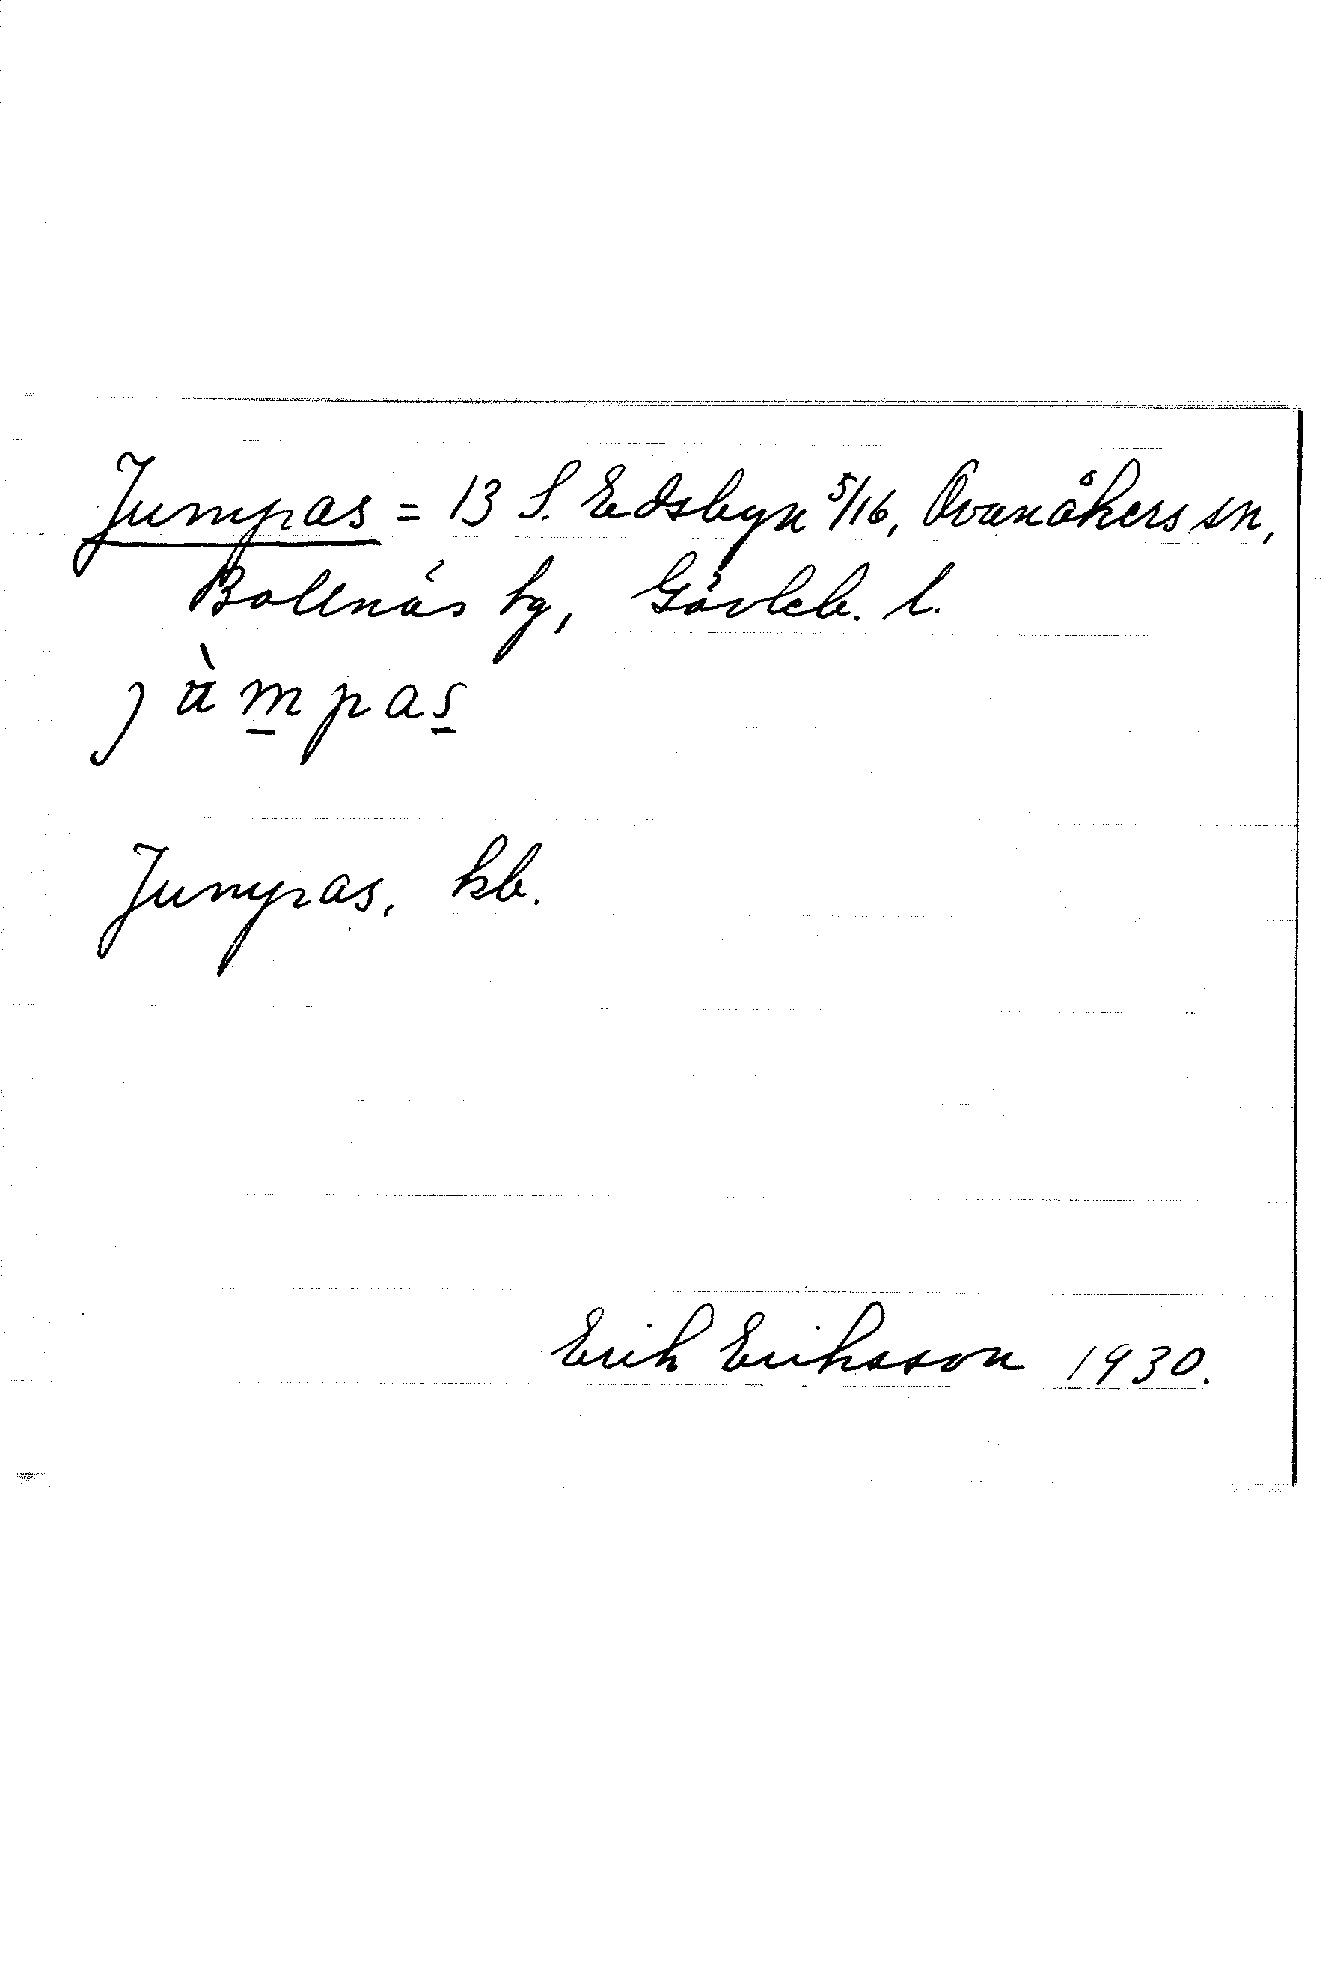 Jumpas = 13 S. Edsbyn 5/16, Ovanåkers sn,
Bollnäs tg, Gävleb. l.
jàmpas
Jumpas, kb.
Erik Eriksson 1930.